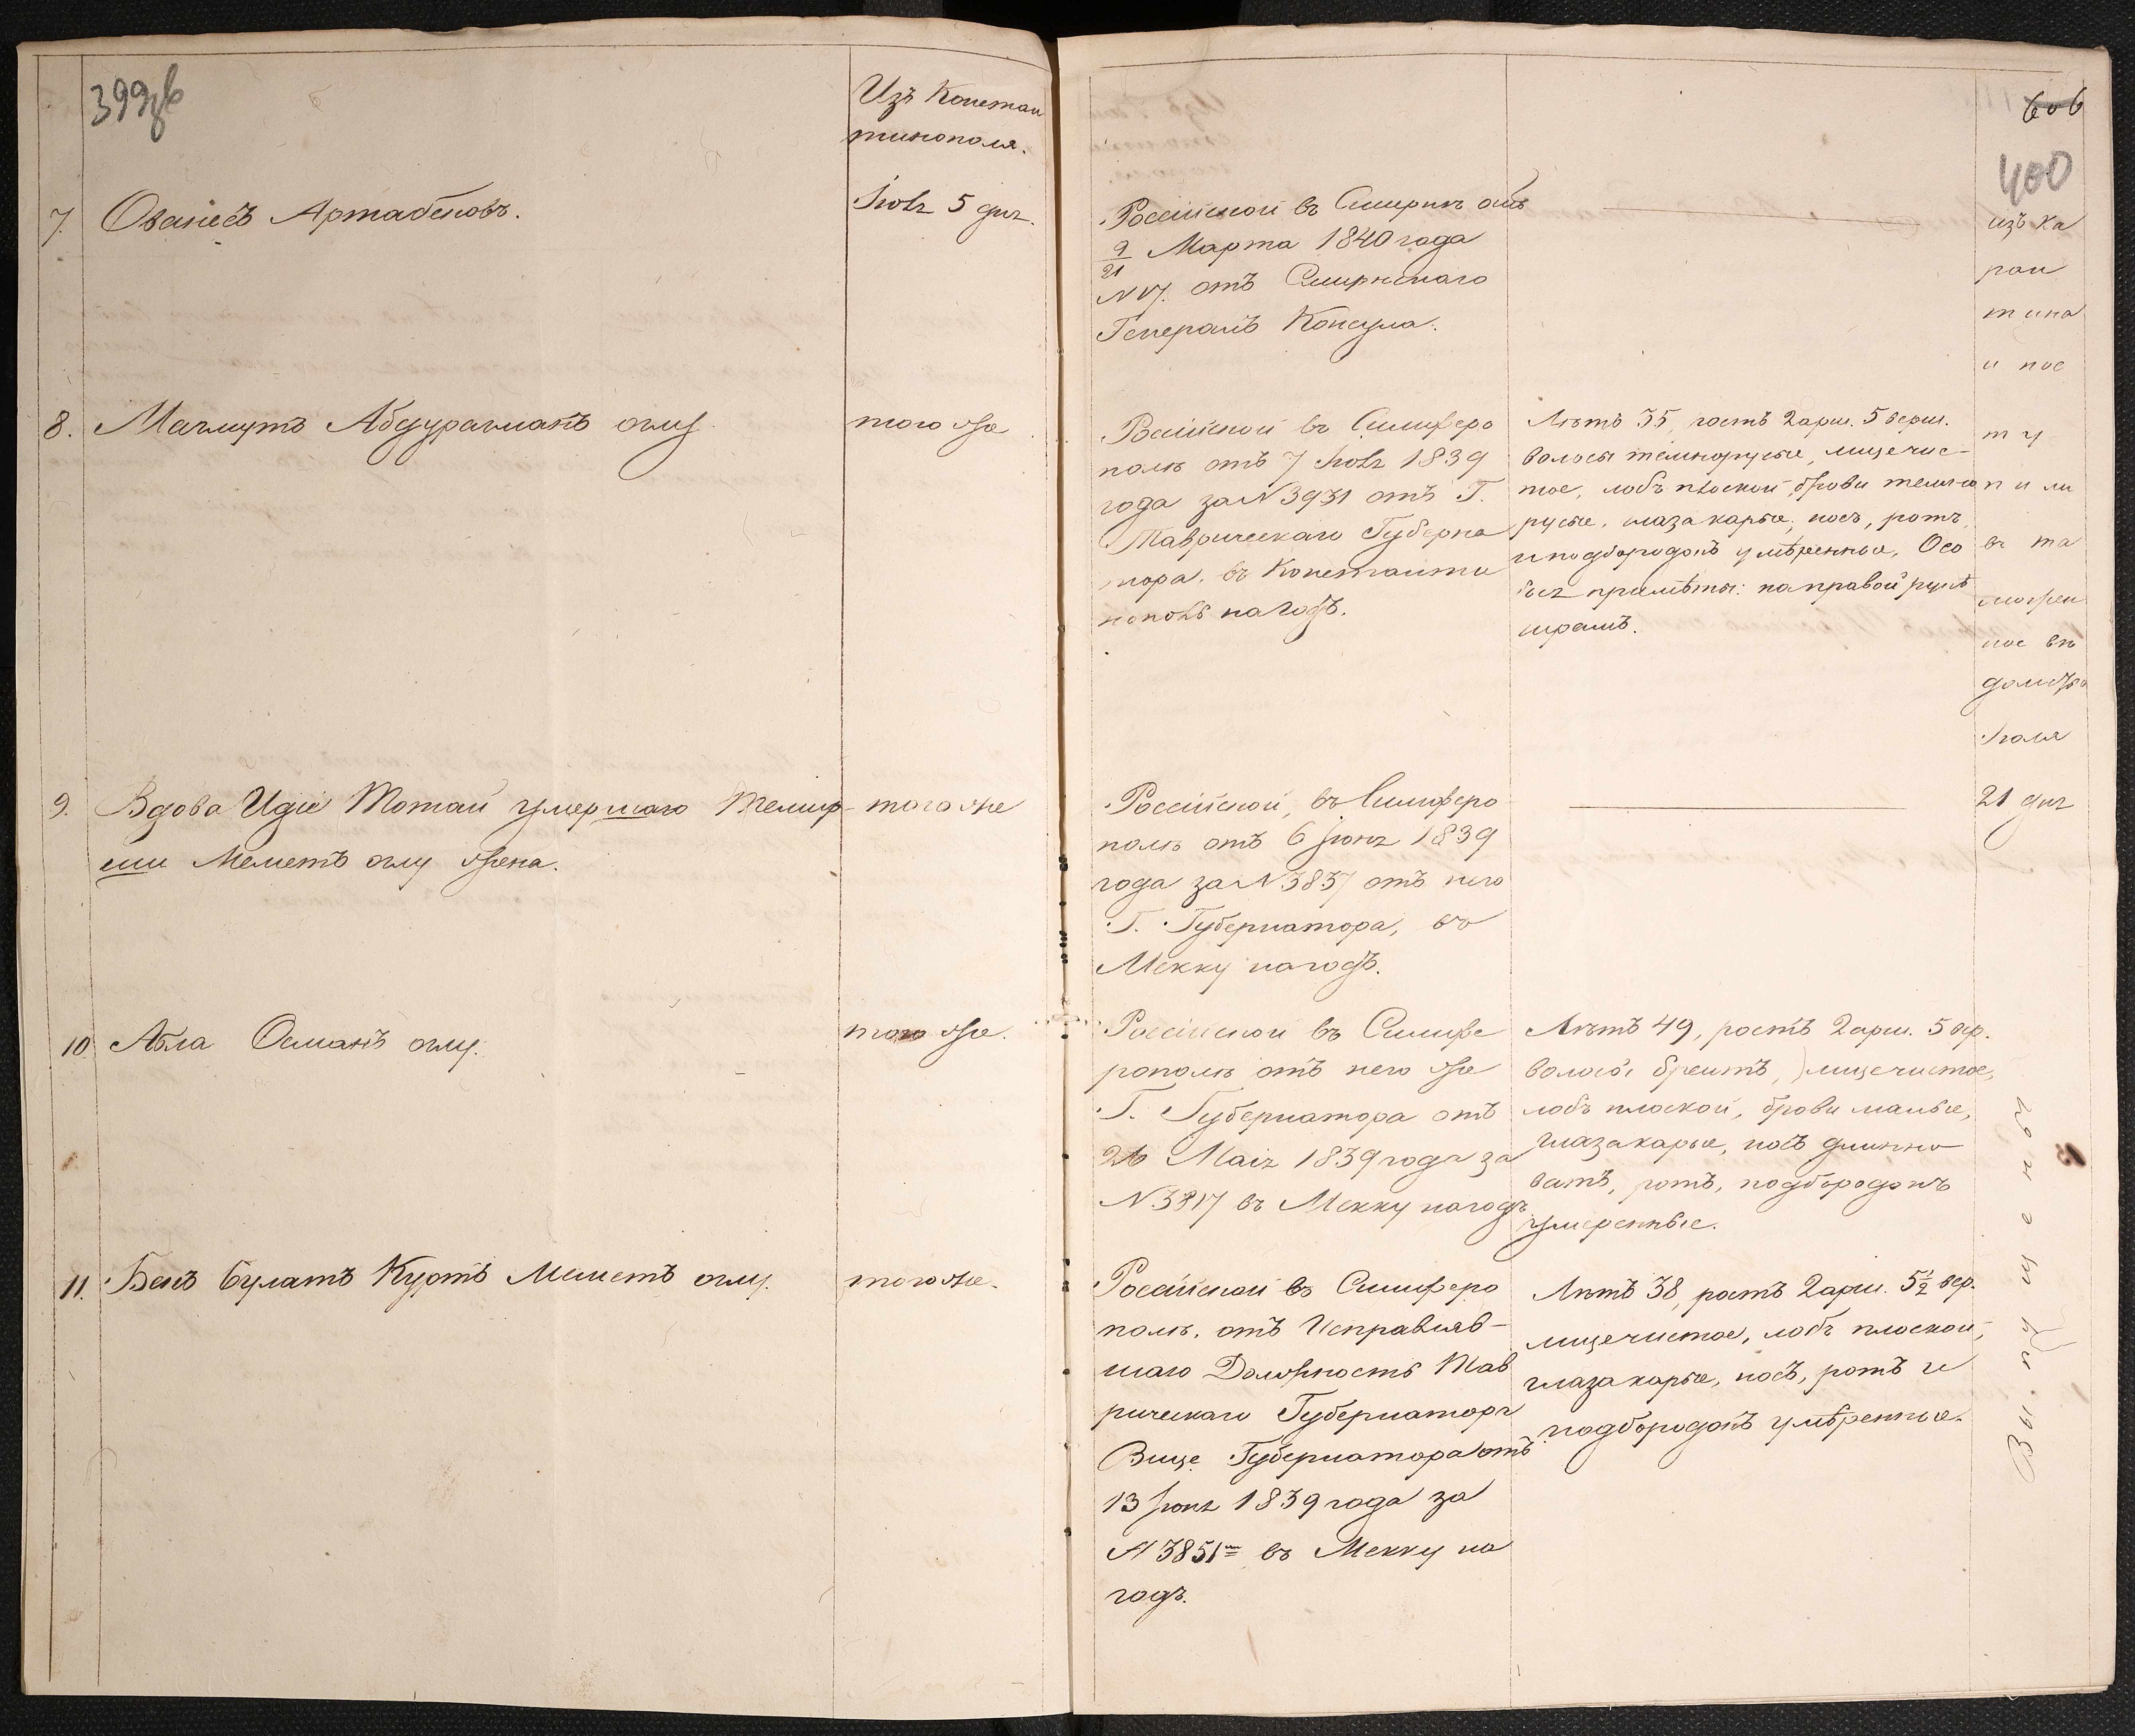 399 об
Изъ Констан
тинополя.
7. Ованесъ Артабеновъ.
Іюля 5 дня.
8. Махмутъ Абдурахманъ оглу
того же
9. Вдова Идіе Мотай умершаго Темир-
ши Меметъ оглу жена.
того же
10 Абла Османъ оглу.
того же.
11. Бекъ Булатъ Куртъ Меметъ оглу.
того же.
606
400
Россійской въ Смирнѣ отъ
9/21 Марта 1840 года
N 17. отъ Смирнскаго
Генералъ Консула.
Россійской въ Симферо
полѣ отъ 7 Іюля 1839
года за N 3931 отъ Г.
Таврическаго Губерна
тора, въ Константи
нополь на годъ.
Лѣтъ 35, ростъ 2 арш. 5 верш.
волосы темнорусые, лице чис-
тое, лобъ плоской, брови темно
русые, глаза карые, носъ, ротъ,
и подбородокъ умѣренные, Осо
быя примѣты: на правой рукѣ
шрамъ.
Россійской, въ Симферо
полѣ отъ 6 Іюня 1839
года за N 3837 отъ него
Г. Губернатора, въ
Мекку на годъ.
Россійской въ Симфе
рополѣ отъ него же
Г. Губернатора отъ
26 Маія 1839 года за
N 3817 въ Мекку на годъ
Лѣтъ 49, ростъ 2 арш. 5 вер.
волосы бреитъ, лице чистое,
лобъ плоской, брови малые,
глаза карые, носъ длинно
ватъ, ротъ, подбородокъ
умеренные.
Россійской въ Симферо
полѣ, отъ Исправляв-
шаго Должность Тав
рическаго Губернатора
Вице Губернатора отъ
13 Іюня 1839 года за
N 3851 въ Мекку на
годъ.
Лѣтъ 38, ростъ 2 арш. 5 1/2 вер.
лице чистое, лобъ плоской,
глаза карые, носъ, ротъ и
подбородокъ умѣренные.
изъ ка
ран
тина
и пос
ту
пили
въ та
можен
ное вѣ
домство
Іюля
21 дня